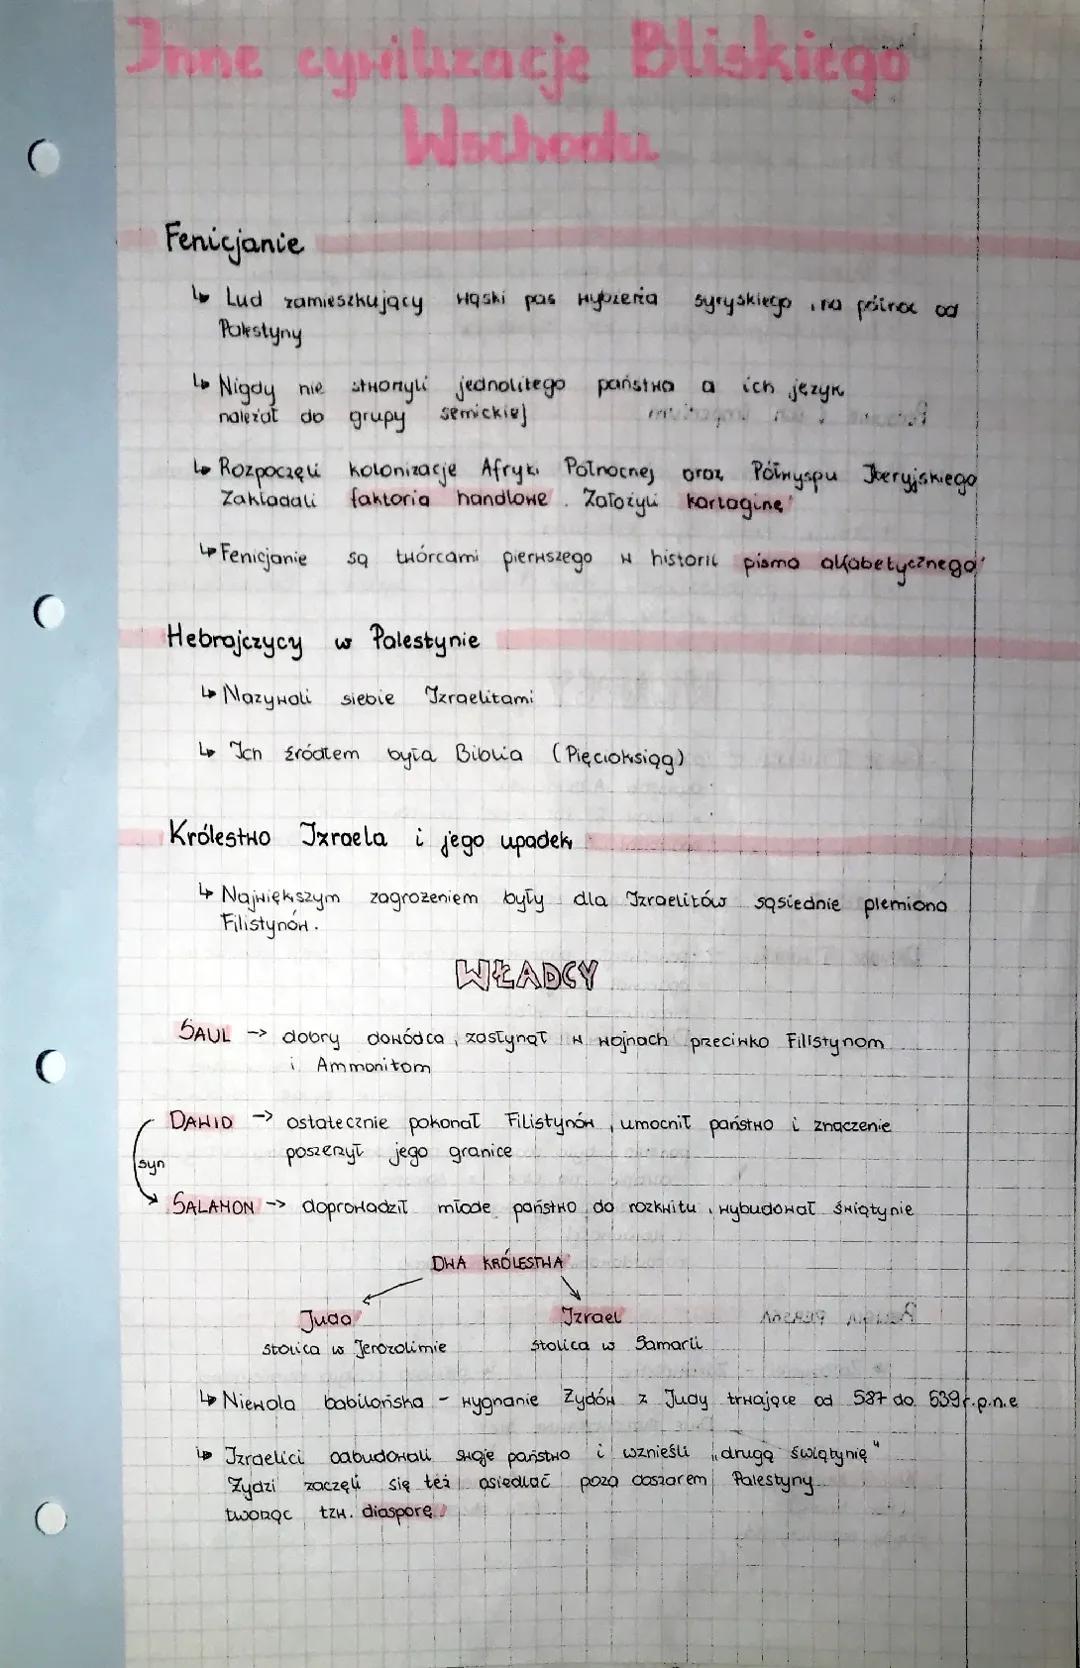 Inne cywilizacje Bliskiego
Wschodu
Fenicjanie
↳ Lud zamieszkujący wąski pas wybrzeża syryskiego, na północ od
Palestyny
↳ Nigdy nie stworzyli jednolitego państwa a ich język
należał do grupy semickiej
↳ Rozpoczęli kolonizacje Afryki Północnej oraz Półwyspu Iberyjskiego
Zakładali faktoria handlowe. Założyli Kartaginę
↳ Fenicjanie są twórcami pierwszego w historii pisma alfabetycznego
Hebrajczycy w Palestynie
↳ Nazywali siebie Izraelitami
↳ Ich źródłem była Biblia (Pięcioksiąg)
Królestwo Izraela i jego upadek
↳ Największym zagrożeniem były dla Izraelitów sąsiednie plemiona
Filistynów.
WŁADCY
SAUL -> dobry dowódca, zasłynął w wojnach przeciwko Filistynom
i Ammonitom
DAWID -> ostatecznie pokonał Filistynów, umocnił państwo i znaczenie
poszerzył jego granice
syn
SALAMON -> doprowadził młode państwo do rozkwitu, wybudował świątynie
DWA KRÓLESTWA
Juda Izrael
stolica w Jerozolimie stolica w Samarii
↳ Niewola babilońska - wygnanie Żydów z Judy trwające od 587 do 539r.p.n.e
↳ Izraelici odbudowali swoje państwo i wznieśli „drugą świątynię"
Żydzi zaczęli się też osiedlać poza obszarem Palestyny
tworząc tzw. diasporę